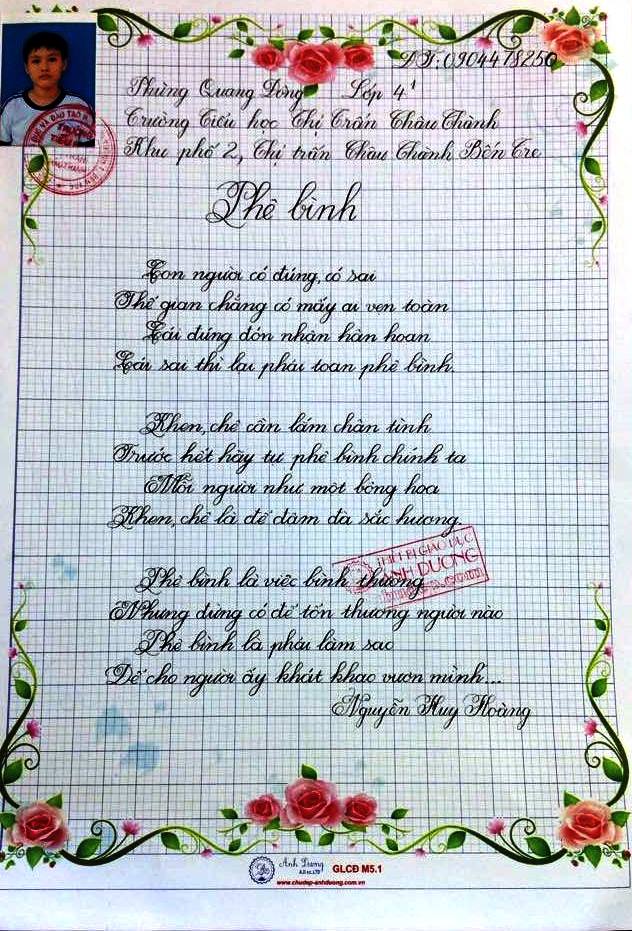 ĐT: 0904478250
Phùng Quang Dong Lớp 4¹
Trường Tiểu học Thị Trấn Châu Thành
Khu phố 2, Thị trấn Châu Thành Bến Tre
Phê bình
Con người có đúng, có sai
Thế gian chẳng có mấy ai vẹn toàn
Cái đúng đón nhận hân hoan
Cái sai thì lại phải toan phê bình.
Khen, chê cần lắm chân tình
Trước hết hãy tự phê bình chính ta
Mỗi người như một bông hoa
Khen, chê là để đậm đà sắc hương.
THIẾT BỊ GIÁO DỤC
ANH DUONG
Phê bình là việc bình thường
Nhưng đừng có để tổn thương người nào
Phê bình là phải làm sao
Để cho người ấy khát khao vươn mình...
Nguyễn Huy Hoàng
Anh Duong
GLCĐ M5.1
www.chudep-anhduong.com.vn